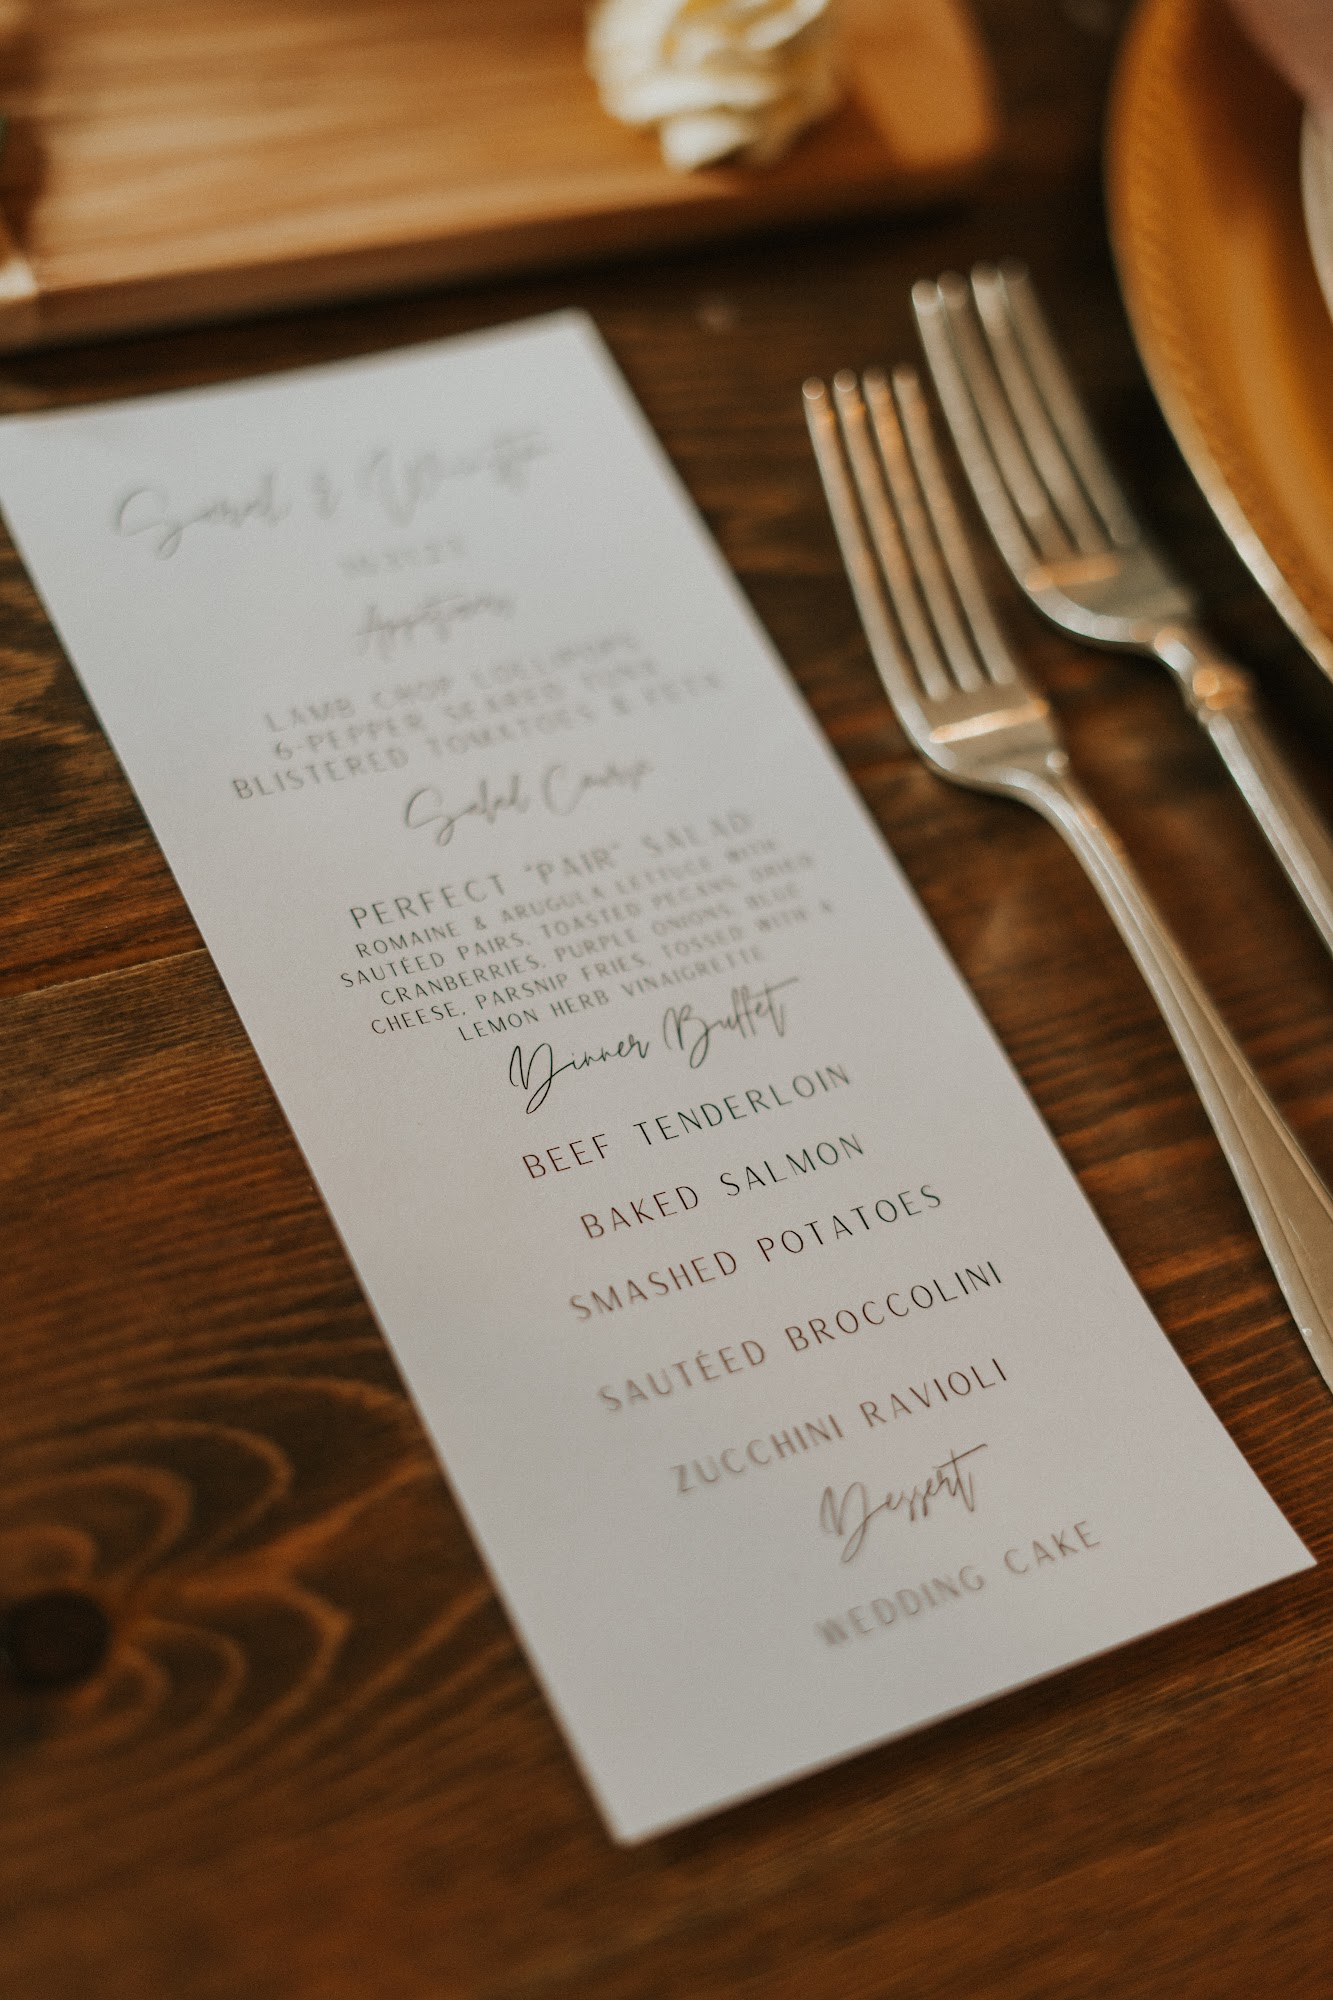 Sarah &
Appetizers
LAMB CHOP LOLLIPOPS
6-PEPPER SEARED TUNA
BLISTERED TOMATOES & FETA
Salad Course
PERFECT "PAIR" SALAD
ROMAINE & ARUGULA LETTUCE WITH
SAUTÉED PAIRS, TOASTED PECANS, DRIED
CRANBERRIES, PURPLE ONIONS, BLUE
CHEESE, PARSNIP FRIES, TOSSED WITH A
LEMON HERB VINAIGRETTE
Dinner Buffet
BEEF TENDERLOIN
BAKED SALMON
SMASHED POTATOES
SAUTÉED BROCCOLINI
ZUCCHINI RAVIOLI
Dessert
WEDDING CAKE